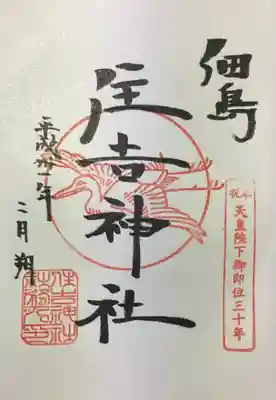 佃島
住吉神社
平成卅一年
二月 朔
天皇陛下御即位三十年
住吉神社
社務所印